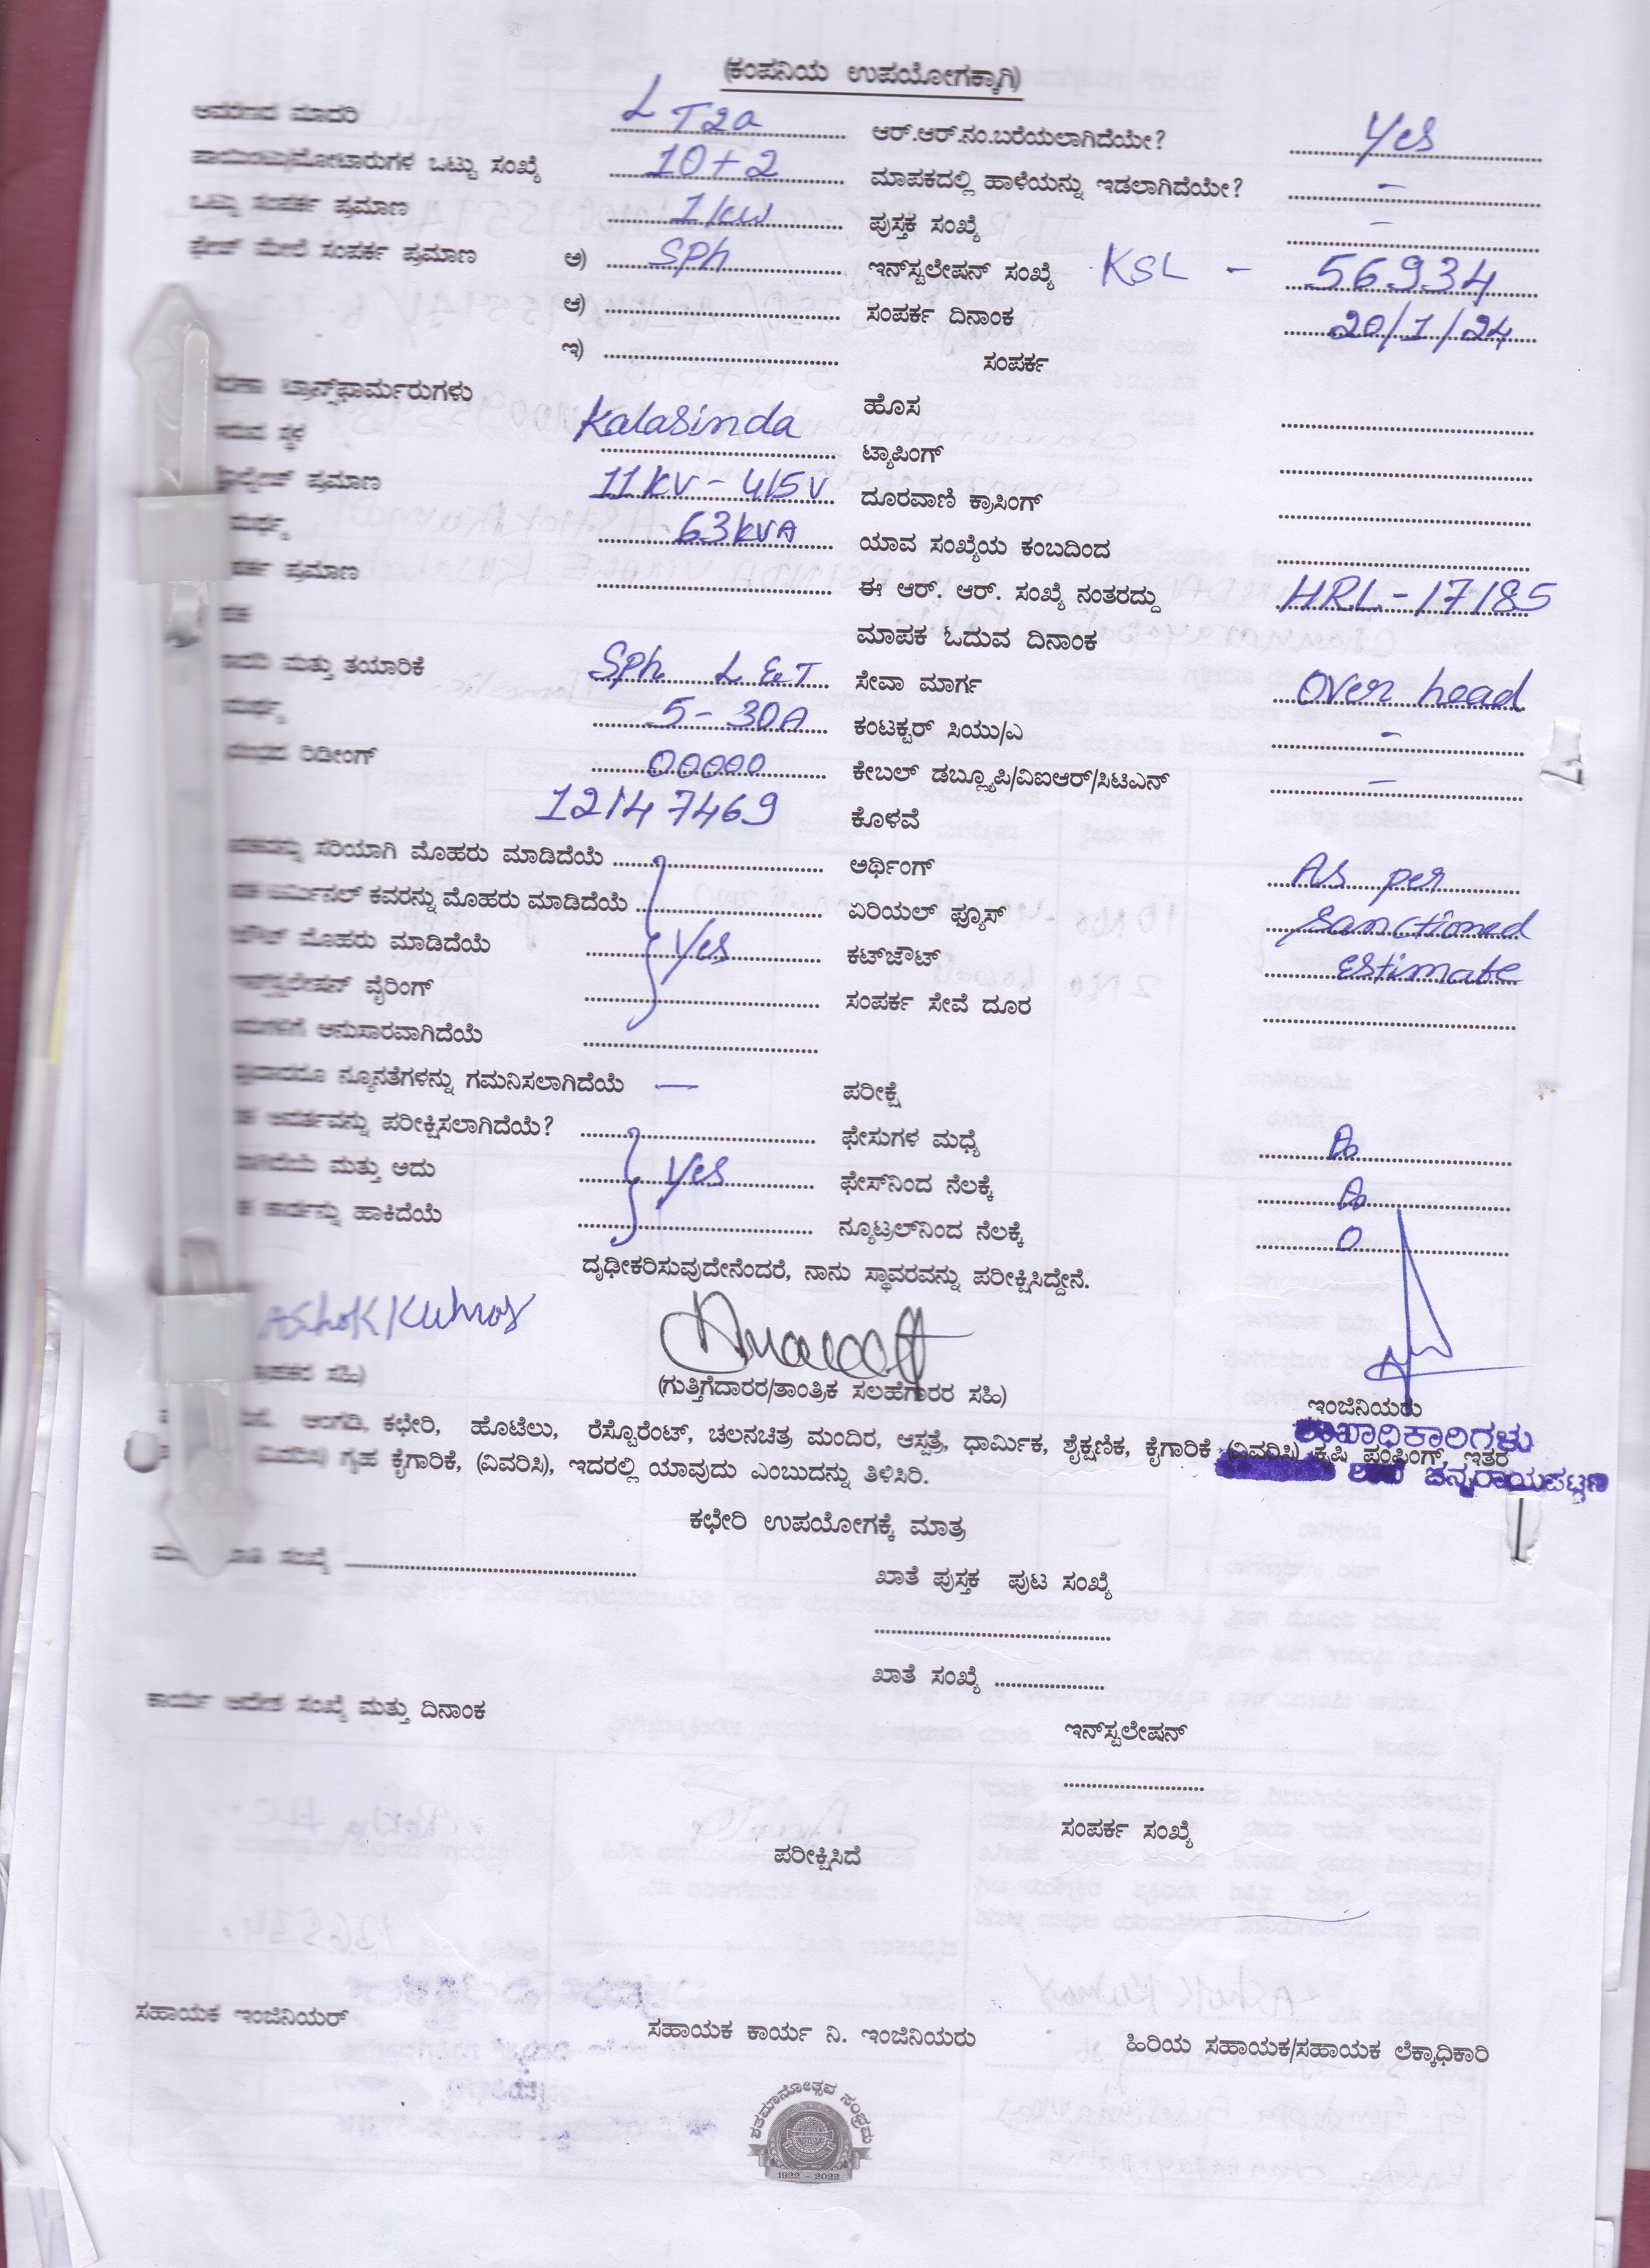 (ಕಂಪನಿಯ ಉಪಯೋಗಕ್ಕಾಗಿ)
ಆವರಣದ ಮಾದರಿ LT2a ಆರ್.ಆರ್.ನಂ.ಬರೆಯಲಾಗಿದೆಯೇ? Yes
ಪಾಯಿಂಟು/ಮೋಟಾರುಗಳ ಒಟ್ಟು ಸಂಖ್ಯೆ 10+2 ಮಾಪಕದಲ್ಲಿ ಹಾಳೆಯನ್ನು ಇಡಲಾಗಿದೆಯೇ? -
ಒಟ್ಟು ಸಂಪರ್ಕ ಪ್ರಮಾಣ 1kw ಪುಸ್ತಕ ಸಂಖ್ಯೆ -
ಫೇಜ್ ಮೇಲೆ ಸಂಪರ್ಕ ಪ್ರಮಾಣ ಅ) SPh ಇನ್‌ಸ್ಟಲೇಷನ್ ಸಂಖ್ಯೆ KSL - 56934
ಆ) ಸಂಪರ್ಕ ದಿನಾಂಕ 20/1/24
ಇ) ಸಂಪರ್ಕ
ಟ್ರಾನ್ಸ್‌ಫಾರ್ಮರುಗಳು ಹೊಸ
ಸ್ಥಳ Kalasinda ಟ್ಯಾಪಿಂಗ್
ಪ್ರಮಾಣ 11KV - 415V ದೂರವಾಣಿ ಕ್ರಾಸಿಂಗ್
63KVA ಯಾವ ಸಂಖ್ಯೆಯ ಕಂಬದಿಂದ
ಪ್ರಮಾಣ ಈ ಆರ್. ಆರ್. ಸಂಖ್ಯೆ ನಂತರದ್ದು HRL - 17185
ಮಾಪಕ ಓದುವ ದಿನಾಂಕ
ಮತ್ತು ತಯಾರಿಕೆ SPh L&T ಸೇವಾ ಮಾರ್ಗ Over head
5 - 30A ಕಂಟಕ್ಟರ್ ಸಿಯು/ಎ -
ರಿಡೀಂಗ್ 00000 ಕೇಬಲ್ ಡಬ್ಲ್ಯೂಪಿ/ವಿಐಆರ್/ಸಿಟಿಎನ್ -
12147469 ಕೊಳವೆ
ಸರಿಯಾಗಿ ಮೊಹರು ಮಾಡಿದೆಯೆ ಅರ್ಥಿಂಗ್ As per
ಟರ್ಮಿನಲ್ ಕವರನ್ನು ಮೊಹರು ಮಾಡಿದೆಯೆ ಏರಿಯಲ್ ಫ್ಯೂಸ್ Sanctioned
ಮೊಹರು ಮಾಡಿದೆಯೆ Yes ಕಟ್‌ಜೌಟ್ estimate
ವೈರಿಂಗ್ ಸಂಪರ್ಕ ಸೇವೆ ದೂರ
ಅನುಸಾರವಾಗಿದೆಯೆ
ನ್ಯೂನತೆಗಳನ್ನು ಗಮನಿಸಲಾಗಿದೆಯೆ — ಪರೀಕ್ಷೆ
ಪರೀಕ್ಷಿಸಲಾಗಿದೆಯೆ? ಫೇಸುಗಳ ಮಧ್ಯೆ
ಮತ್ತು ಅದು Yes ಫೇಸ್‌ನಿಂದ ನೆಲಕ್ಕೆ
ಕಾರ್ಡನ್ನು ಹಾಕಿದೆಯೆ ನ್ಯೂಟ್ರಲ್‌ನಿಂದ ನೆಲಕ್ಕೆ 0
ದೃಢೀಕರಿಸುವುದೇನೆಂದರೆ, ನಾನು ಸ್ಥಾವರವನ್ನು ಪರೀಕ್ಷಿಸಿದ್ದೇನೆ.
AshokKumar
ಸಹಿ) (ಗುತ್ತಿಗೆದಾರರ/ತಾಂತ್ರಿಕ ಸಲಹೆಗಾರರ ಸಹಿ) ಇಂಜಿನಿಯರು
ಶಾಖಾಧಿಕಾರಿಗಳು
ಅಂಗಡಿ, ಕಛೇರಿ, ಹೊಟೆಲು, ರೆಸ್ಟೊರೆಂಟ್, ಚಲನಚಿತ್ರ ಮಂದಿರ, ಆಸ್ಪತ್ರೆ, ಧಾರ್ಮಿಕ, ಶೈಕ್ಷಣಿಕ, ಕೈಗಾರಿಕೆ (ವಿವರಿಸಿ) ಕೃಷಿ ಪಂಪಿಂಗ್, ಇತರ
(ವಿವರಿಸಿ) ಗೃಹ ಕೈಗಾರಿಕೆ, (ವಿವರಿಸಿ), ಇದರಲ್ಲಿ ಯಾವುದು ಎಂಬುದನ್ನು ತಿಳಿಸಿರಿ.
ಚನ್ನರಾಯಪಟ್ಟಣ
ಕಛೇರಿ ಉಪಯೋಗಕ್ಕೆ ಮಾತ್ರ
ಸಂಖ್ಯೆ
ಖಾತೆ ಪುಸ್ತಕ ಪುಟ ಸಂಖ್ಯೆ
ಖಾತೆ ಸಂಖ್ಯೆ
ಕಾರ್ಯ ಆದೇಶ ಸಂಖ್ಯೆ ಮತ್ತು ದಿನಾಂಕ
ಇನ್‌ಸ್ಟಲೇಷನ್
ಸಂಪರ್ಕ ಸಂಖ್ಯೆ
ಪರೀಕ್ಷಿಸಿದೆ
ಸಹಾಯಕ ಇಂಜಿನಿಯರ್ ಸಹಾಯಕ ಕಾರ್ಯ ನಿ. ಇಂಜಿನಿಯರು ಹಿರಿಯ ಸಹಾಯಕ/ಸಹಾಯಕ ಲೆಕ್ಕಾಧಿಕಾರಿ
ಶತಮಾನೋತ್ಸವ ಸಂಭ್ರಮ
1922 - 2022